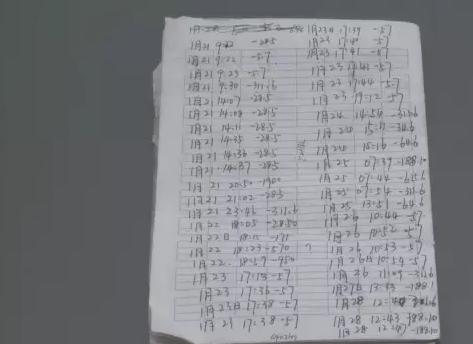 1月21 9:22 -28.5
1月21 9:22 -5.7
1月21 9:23 -5.7
1月21 9:30 -311.6
1月21 14:07 -28.5
1月21 14:08 -28.5
1月21 14:11 -28.5
1月21 14:35 -28.5
1月21 14:36 -28.5
1月21 14:37 -28.5
1月21 20:50 -1900
1月21 21:02 -285
1月21 23:46 -311.6
1月22 18:05 -2850
1月22日 18:11 -171
1月22 18:23 -570
1月22 18:59 -950
1月23 17:13 -57
1月23 17:36 -57
1月23日 17:38 -57
1月23 17:38 -57
1月23日 17:39 -57
1月23 17:41 -57
1月23 17:43 -57
1月23 17:44 -57
1月23 19:12 -57
1月24 14:54 -311.6
1月24 15:17 -34.6
1月24 15:16 -64.6
1月25 07:39 -188.10
1月25 07:44 -65.6
1月25 07:54 -311.6
1月25 13:51 -64.6
1月26 10:44 -57
1月26 10:52 -57
1月26 10:53 -57
1月26日 10:54 -57
1月26 11:09 -311.6
1月28 12:43 -188.10
1月28 12:47 -188.10